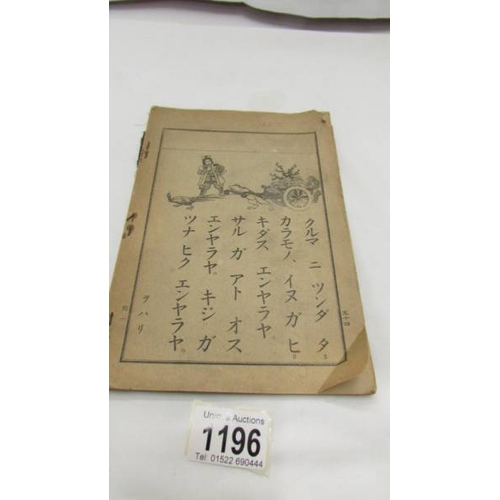 クルマ ニ ツンダ タ
カラモノ、イヌ ガ ヒ
キダス エンヤラヤ。
サル ガ アト オス
エンヤラヤ。キジ ガ
ツナ ヒク エンヤラヤ。
ヲハリ
五十四
Tel: 01522 690444
1196